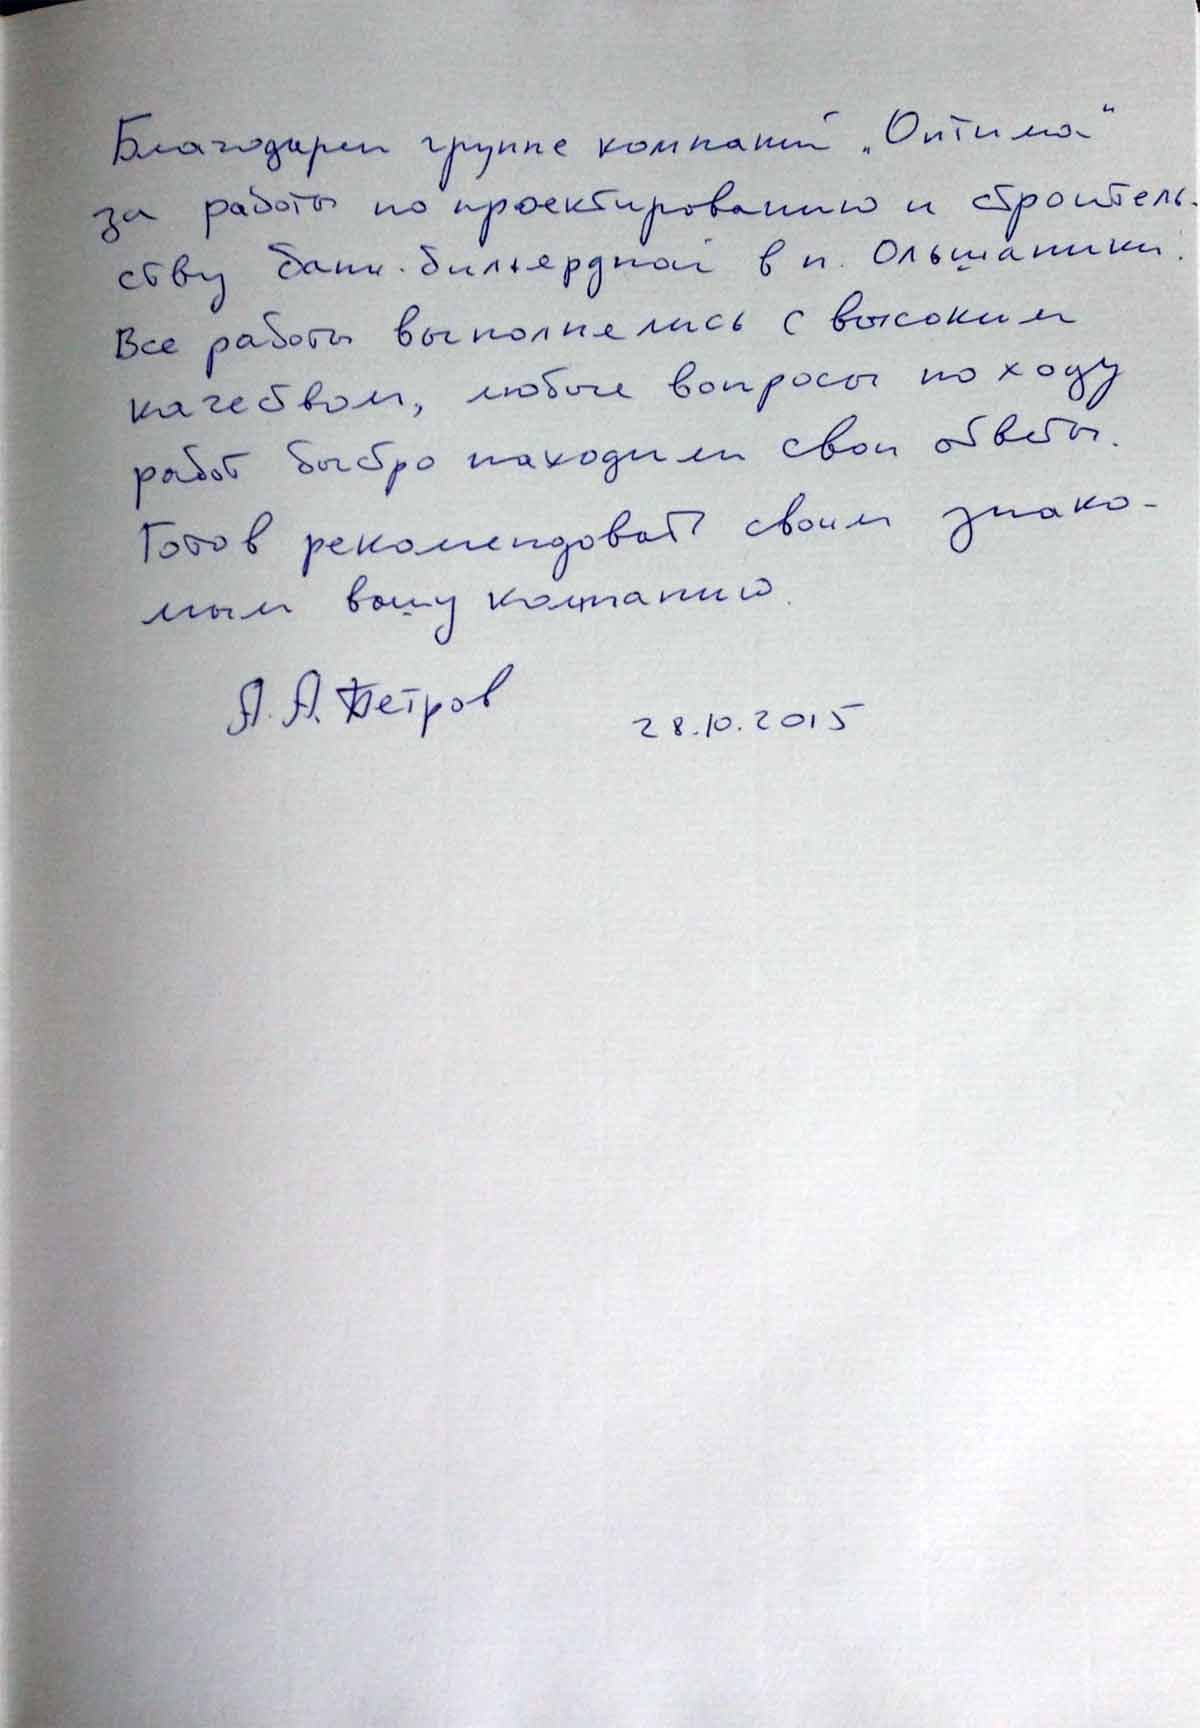 Благодарен группе компаний „Оптима"
за работы по проектированию и строитель-
ству бани-бильярдной в п. Ольшаники.
Все работы выполнелись с высоким
качеством, любые вопросы по ходу
работ быстро находили свои ответы.
Готов рекомендовать своим знако-
мым вашу компанию.
А. А. Петров 28.10.2015